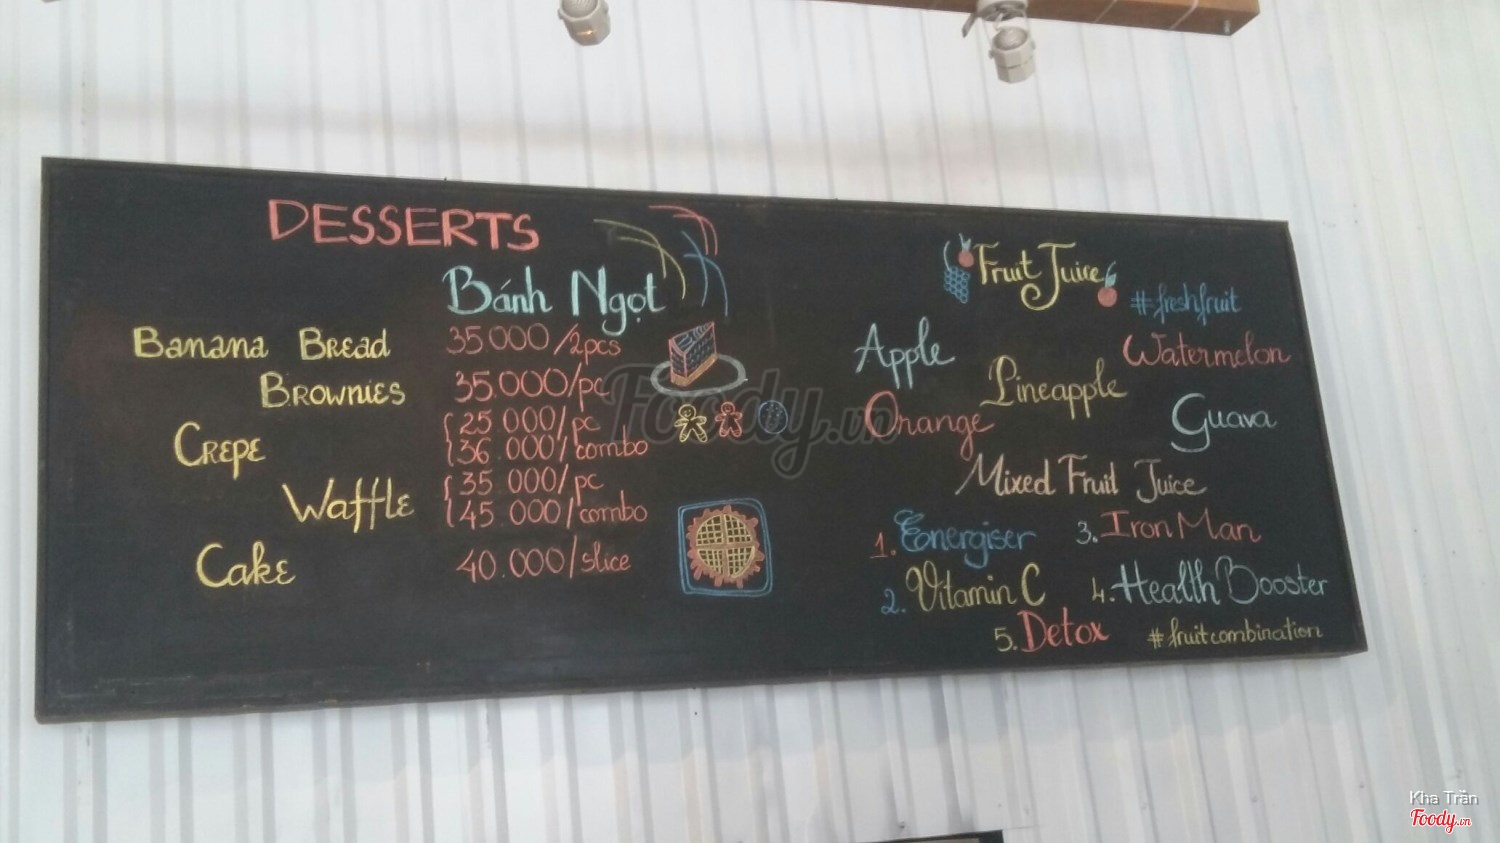 DESSERTS
Bánh Ngọt
Banana Bread 35.000/2pcs
Brownies 35.000/pc
Crepe 25.000/pc
36.000/combo
Waffle 35.000/pc
45.000/combo
Cake 40.000/slice
Fruit Juice
#freshfruit
Apple
Watermelon
Pineapple
Orange
Guava
Mixed Fruit Juice
1. Energiser
3. Iron Man
2. Vitamin C
4. Health Booster
5. Detox
#fruitcombination
Foody.vn
Kha Trần
Foody.vn